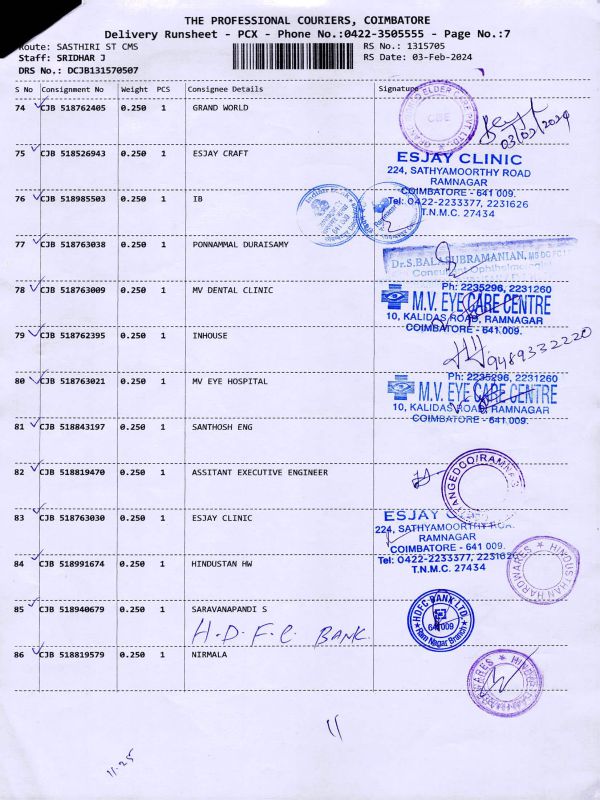 THE PROFESSIONAL COURIERS, COIMBATORE
Delivery Runsheet - PCX - Phone No.:0422-3505555 - Page No.:7
Route: SASTHIRI ST CMS
RS No.: 1315705
Staff: SRIDHAR J
RS Date: 03-Feb-2024
DRS No.: DCJB131570507
S No Consignment No Weight PCS Consignee Details Signature
74 CJB 518762405 0.250 1 GRAND WORLD
03/02/2024
75 CJB 518526943 0.250 1 ESJAY CRAFT
ESJAY CLINIC
224, SATHYAMOORTHY ROAD
RAMNAGAR
COIMBATORE - 641 009.
Tel: 0422-2233377, 2231626
T.N.M.C. 27434
76 CJB 518985503 0.250 1 IB
77 CJB 518763038 0.250 1 PONNAMMAL DURAISAMY
Dr.S.BALASUBRAMANIAN,
78 CJB 518763009 0.250 1 MV DENTAL CLINIC
Ph: 2235296, 2231260
M.V. EYE CARE CENTRE
10, KALIDAS ROAD, RAMNAGAR
COIMBATORE - 641 009.
79 CJB 518762395 0.250 1 INHOUSE
9489332220
80 CJB 518763021 0.250 1 MV EYE HOSPITAL
Ph: 2235296, 2231260
M.V. EYE CARE CENTRE
10, KALIDAS ROAD, RAMNAGAR
COIMBATORE - 641 009.
81 CJB 518843197 0.250 1 SANTHOSH ENG
82 CJB 518819470 0.250 1 ASSITANT EXECUTIVE ENGINEER
83 CJB 518763030 0.250 1 ESJAY CLINIC
ESJAY
224, SATHYAMOORTHY
RAMNAGAR
COIMBATORE - 641 009.
Tel: 0422-2233377, 2231626
T.N.M.C. 27434
84 CJB 518991674 0.250 1 HINDUSTAN HW
HINDUSTHAN HARDWARES
85 CJB 518940679 0.250 1 SARAVANAPANDI S
H.D.F.C BANK
HDFC BANK LTD.
641 009
Ram Nagar Branch
86 CJB 518819579 0.250 1 NIRMALA
11
11.25